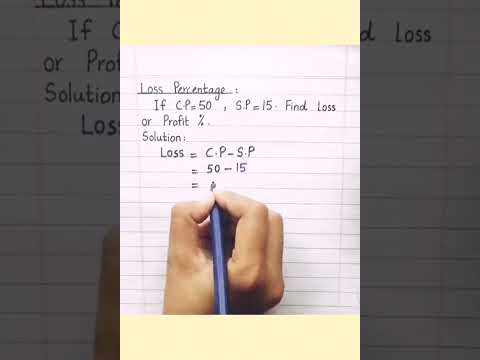 Loss Percentage :
If C.P = 50 , S.P = 15. Find Loss
or Profit %.
Solution:
Loss = C.P - S.P
= 50 - 15
=